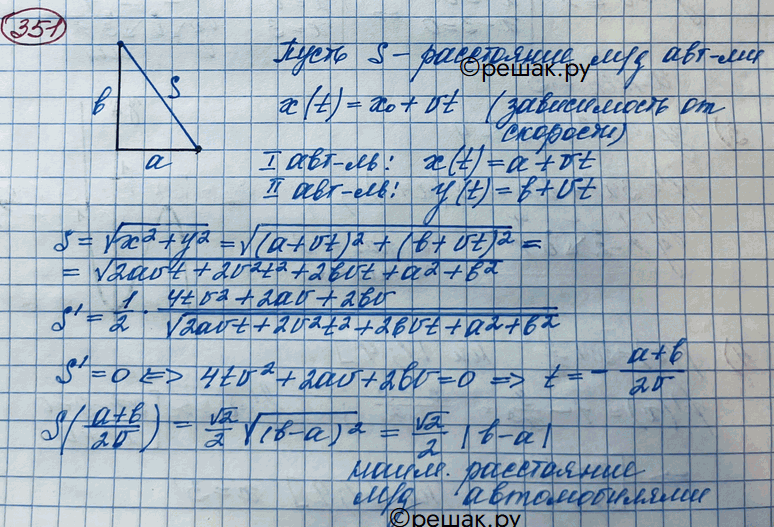 351
Пусть S – расстояние м/д авт-ми
©решак.ру
x(t) = x₀ + vt (зависимость от
скорости)
I авт-ль: x(t) = a + vt
II авт-ль: y(t) = в + vt
в
S
a
S = √(x² + y²) = √((a + vt)² + (в + vt)²) =
= √(2avt + 2v²t² + 2вvt + a² + в²)
S' = 1/2 · (4tv² + 2av + 2вv)/√(2avt + 2v²t² + 2вvt + a² + в²)
S' = 0 <=> 4tv² + 2av + 2вv = 0 => t = – (a + в)/2v
S((a + в)/2v) = √2/2 √((в – a)²) = √2/2 |в – a|
наим. расстояние
м/д автомобилями
©решак.ру